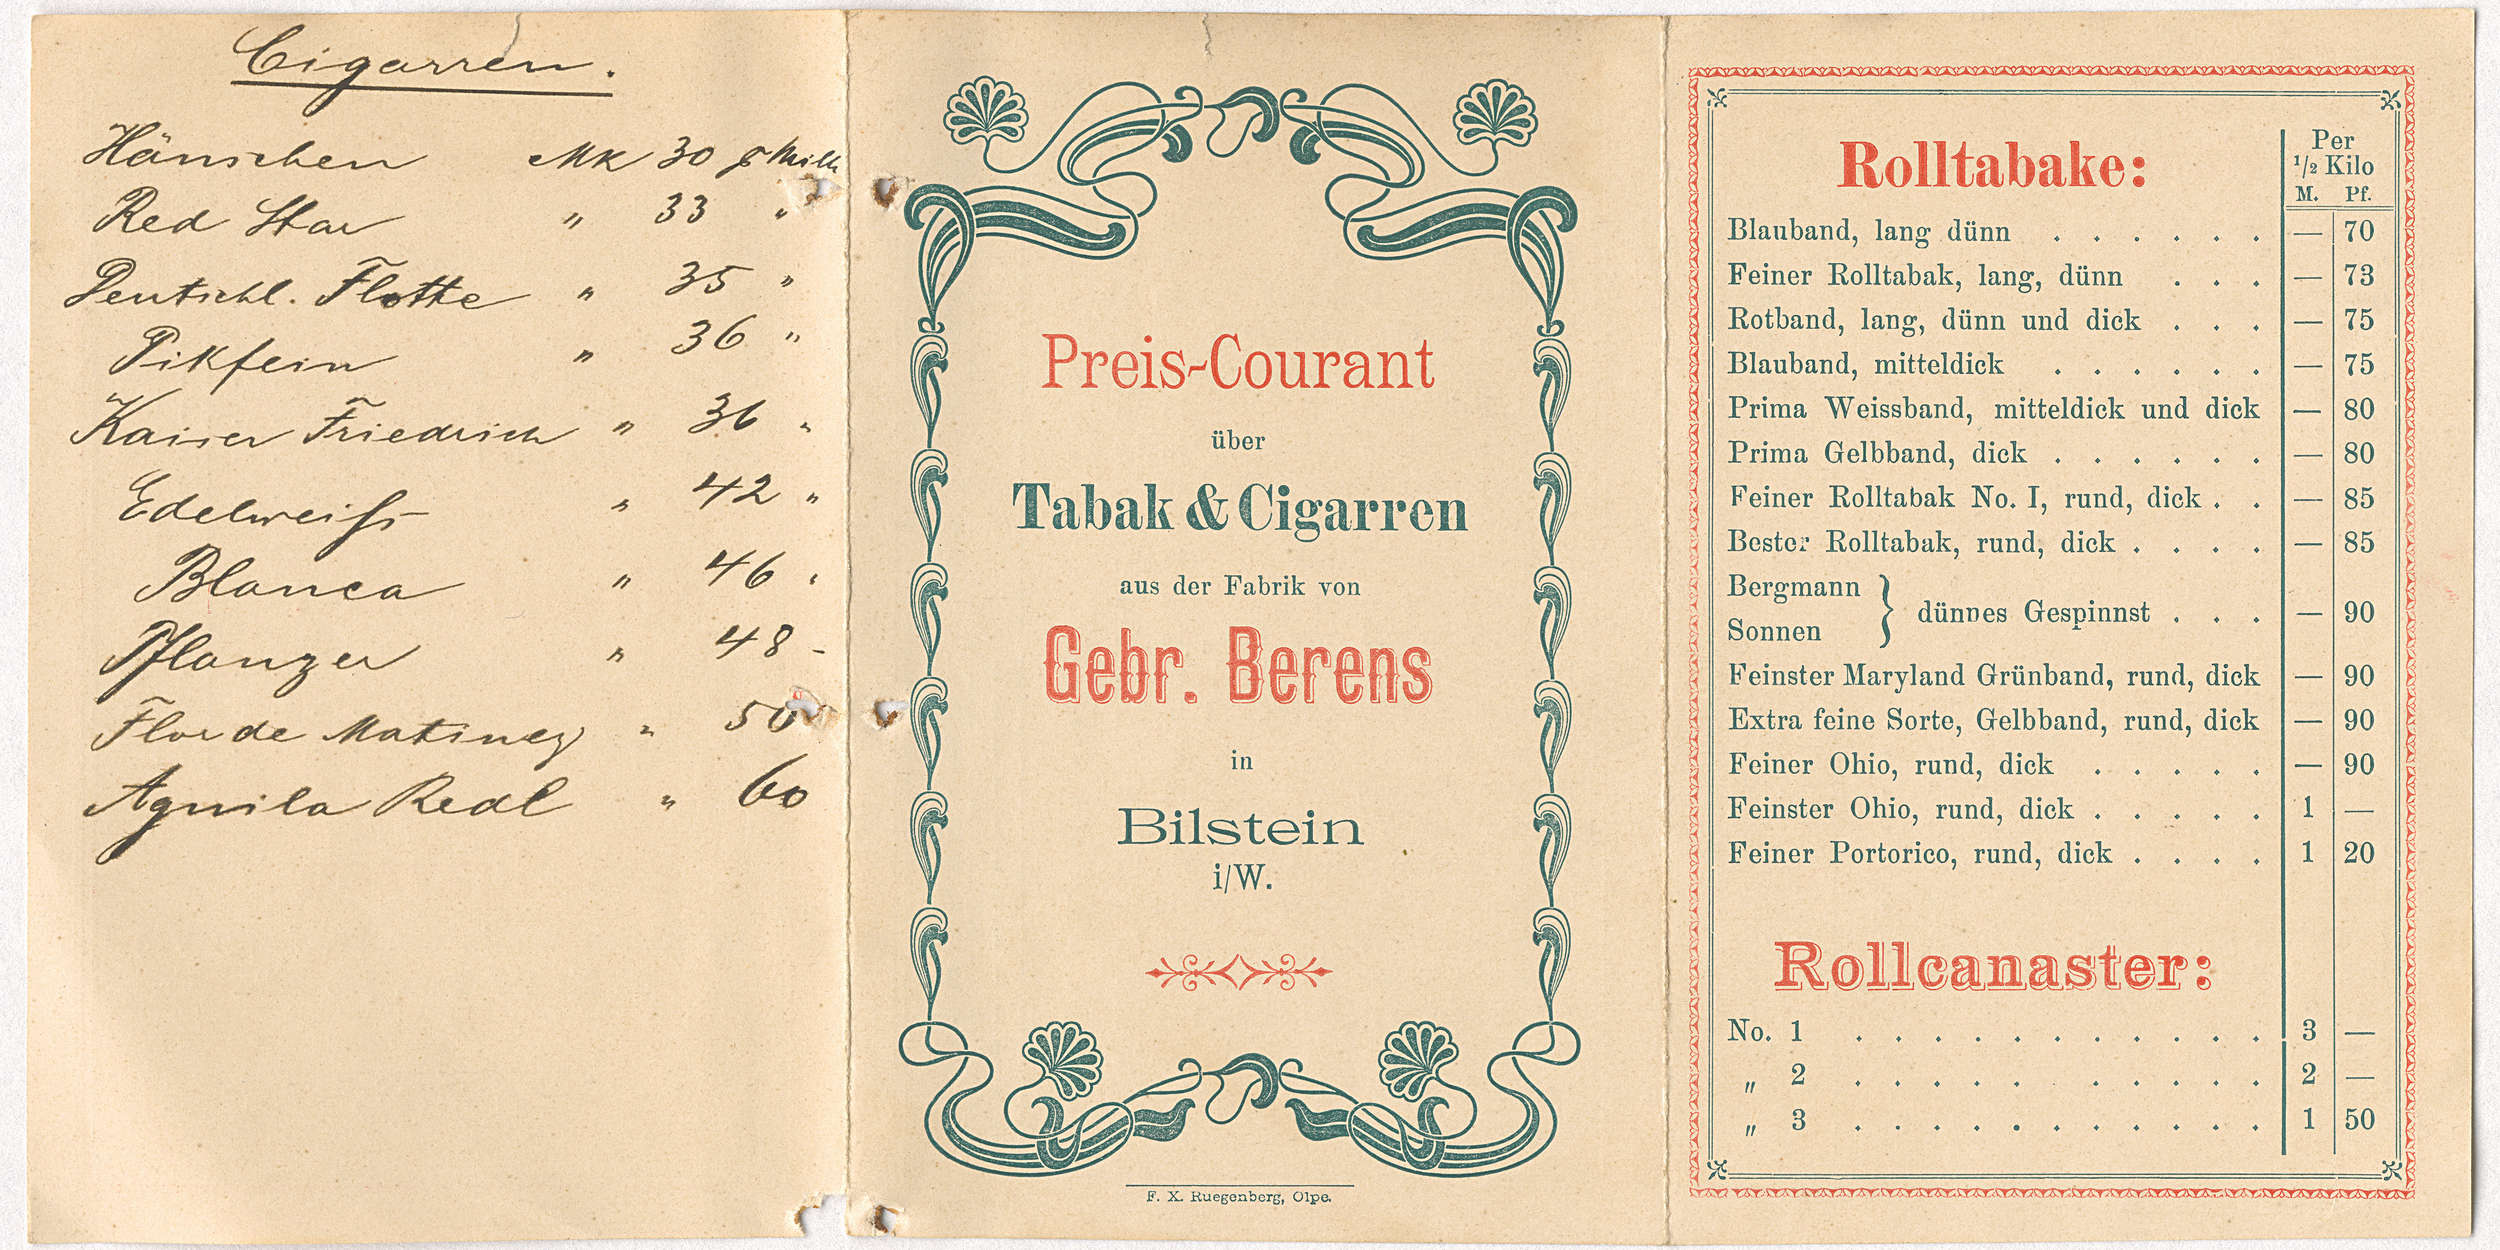 Cigarren.
Hänschen Mk 30 p Mille
Red Star " 33 "
Deutschl. Flotte " 35 "
Pikfein " 36 "
Kaiser Friedrich " 36 "
Edelweiß " 42 "
Blanca " 46 "
Pflanzer " 48 -
Flor de Matinez " 50
Aguila Real " 60
Preis-Courant
über
Tabak & Cigarren
aus der Fabrik von
Gebr. Berens
in
Bilstein
i/W.
F. X. Ruegenberg, Olpe.
Rolltabake:
Per
1/2 Kilo
M. Pf.
Blauband, lang dünn . . . . . . — 70
Feiner Rolltabak, lang, dünn . . . — 73
Rotband, lang, dünn und dick . . . — 75
Blauband, mitteldick . . . . . . — 75
Prima Weissband, mitteldick und dick — 80
Prima Gelbband, dick . . . . . . — 80
Feiner Rolltabak No. I, rund, dick . . — 85
Bester Rolltabak, rund, dick . . . . — 85
Bergmann
Sonnen } dünnes Gespinnst . . . — 90
Feinster Maryland Grünband, rund, dick — 90
Extra feine Sorte, Gelbband, rund, dick — 90
Feiner Ohio, rund, dick . . . . . — 90
Feinster Ohio, rund, dick . . . . . 1 —
Feiner Portorico, rund, dick . . . . 1 20
Rollcanaster:
No. 1 . . . . . . . . . . . 3 —
„ 2 . . . . . . . . . . 2 —
„ 3 . . . . . . . . . . . 1 50